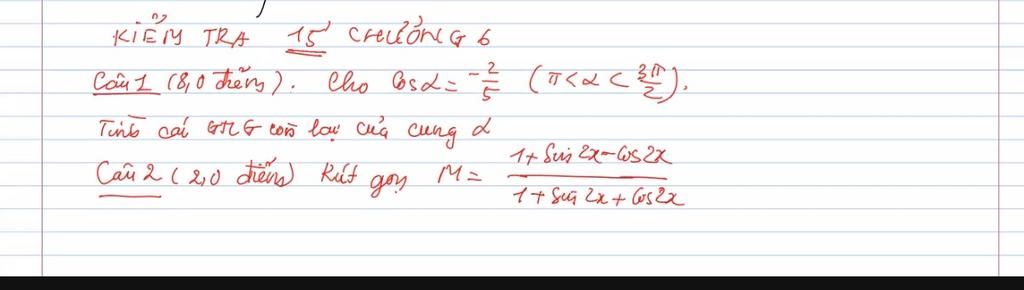 KIỂM TRA 15' CHƯƠNG 6
Câu 1 (8,0 điểm). Cho Cosα = -2/5 (π < α < 3π/2).
Tính các GTLG còn lại của cung α
Câu 2 (2,0 điểm) Rút gọn M = (1 + Sin 2x - Cos 2x)/(1 + Sin 2x + Cos 2x)